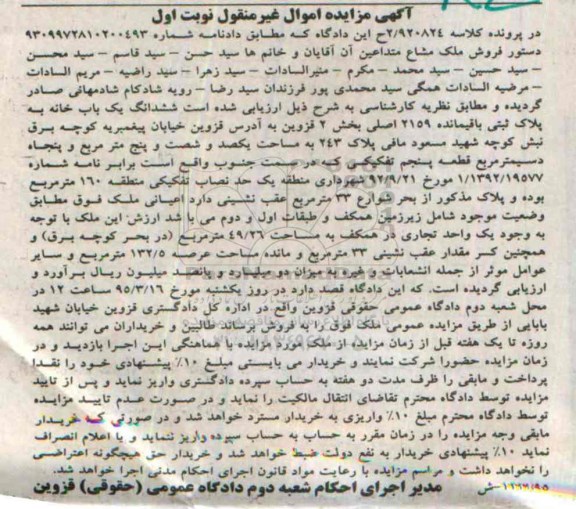 آگهی مزایده اموال غیرمنقول نوبت اول
در پرونده کلاسه ۲/۹۲۰۸۲۴ح این دادگاه که مطابق دادنامه شماره ۹۳۰۹۹۷۲۸۱۰۲۰۰۴۹۳
دستور فروش ملک مشاع متداعین آن آقایان و خانم ها سید حسن – سید قاسم – سید محسن
– سید حسین – سید محمد – مکرم – منیرالسادات – سید زهرا – سید راضیه – مریم السادات
– مرضیه السادات همگی سید محمدی پور فرزندان سید رضا – رویه شادکام شادمهانی صادر
گردیده و مطابق نظریه کارشناسی به شرح ذیل ارزیابی شده است ششدانگ یک باب خانه به
پلاک ثبتی باقیمانده ۲۱۵۹ اصلی بخش ۲ قزوین به آدرس قزوین خیابان پیغمبریه کوچه برق
نبش کوچه شهید مسعود مافی پلاک ۲۴۳ به مساحت یکصد و شصت و پنج متر مربع و پنجاه
دسیمترمربع قطعه پنجم تفکیکی که در سمت جنوب واقع است برابر نامه شماره
۱/۱۳۹۲/۱۹۵۷۷ مورخ ۹۲/۹/۲۱ شهرداری منطقه یک حد نصاب تفکیکی منطقه ۱۶۰ مترمربع
بوده و پلاک مذکور از بحر شوارع ۳۳ مترمربع عقب نشینی دارد اعیانی ملک فوق مطابق
وضعیت موجود شامل زیرزمین همکف و طبقات اول و دوم می با شد ارزش این ملک با توجه
به وجود یک واحد تجاری در همکف به مساحت ۴۹/۲۶ مترمربع (در بحر کوچه برق) و
همچنین کسر مقدار عقب نشینی ۳۳ مترمربع و مانده مساحت عرصه ۱۳۲/۵ مترمربع و سایر
عوامل موثر از جمله انشعابات و غیره به میزان دو میلیارد و پانصد میلیون ریال برآورد و
ارزیابی گردیده است. که این دادگاه قصد دارد در روز یکشنبه مورخ ۹۵/۳/۱۶ ساعت ۱۲ در
محل شعبه دوم دادگاه عمومی حقوقی قزوین واقع در اداره کل دادگستری قزوین خیابان شهید
بابایی از طریق مزایده عمومی ملک فوق را به فروش برساند طالبین و خریداران می توانند همه
روزه تا یک هفته قبل از زمان مزایده از ملک مورد مزایده با هماهنگی این اجرا بازدید و در
زمان مزایده حضورا شرکت نمایند و خریدار می بایستی مبلغ ۱۰٪ پیشنهادی خود را نقدا
پرداخت و مابقی را ظرف مدت دو هفته به حساب سپرده دادگستری واریز نماید و پس از تایید
مزایده توسط دادگاه محترم تقاضای انتقال مالکیت را نماید و در صورت عدم تایید مزایده
توسط دادگاه محترم مبلغ ۱۰٪ واریزی به خریدار مسترد خواهد شد و در صورتی که خریدار
مابقی وجه مزایده را در زمان مقرر به حساب به حساب سپرده واریز ننماید و یا اعلام انصراف
نماید ۱۰٪ پیشنهادی خریدار به نفع دولت ضبط خواهد شد و خریدار حق هیچگونه اعتراضی
را نخواهد داشت و مراسم مزایده با رعایت مواد قانون اجرای احکام مدنی اجرا خواهد شد.
مدیر اجرای احکام شعبه دوم دادگاه عمومی (حقوقی) قزوین